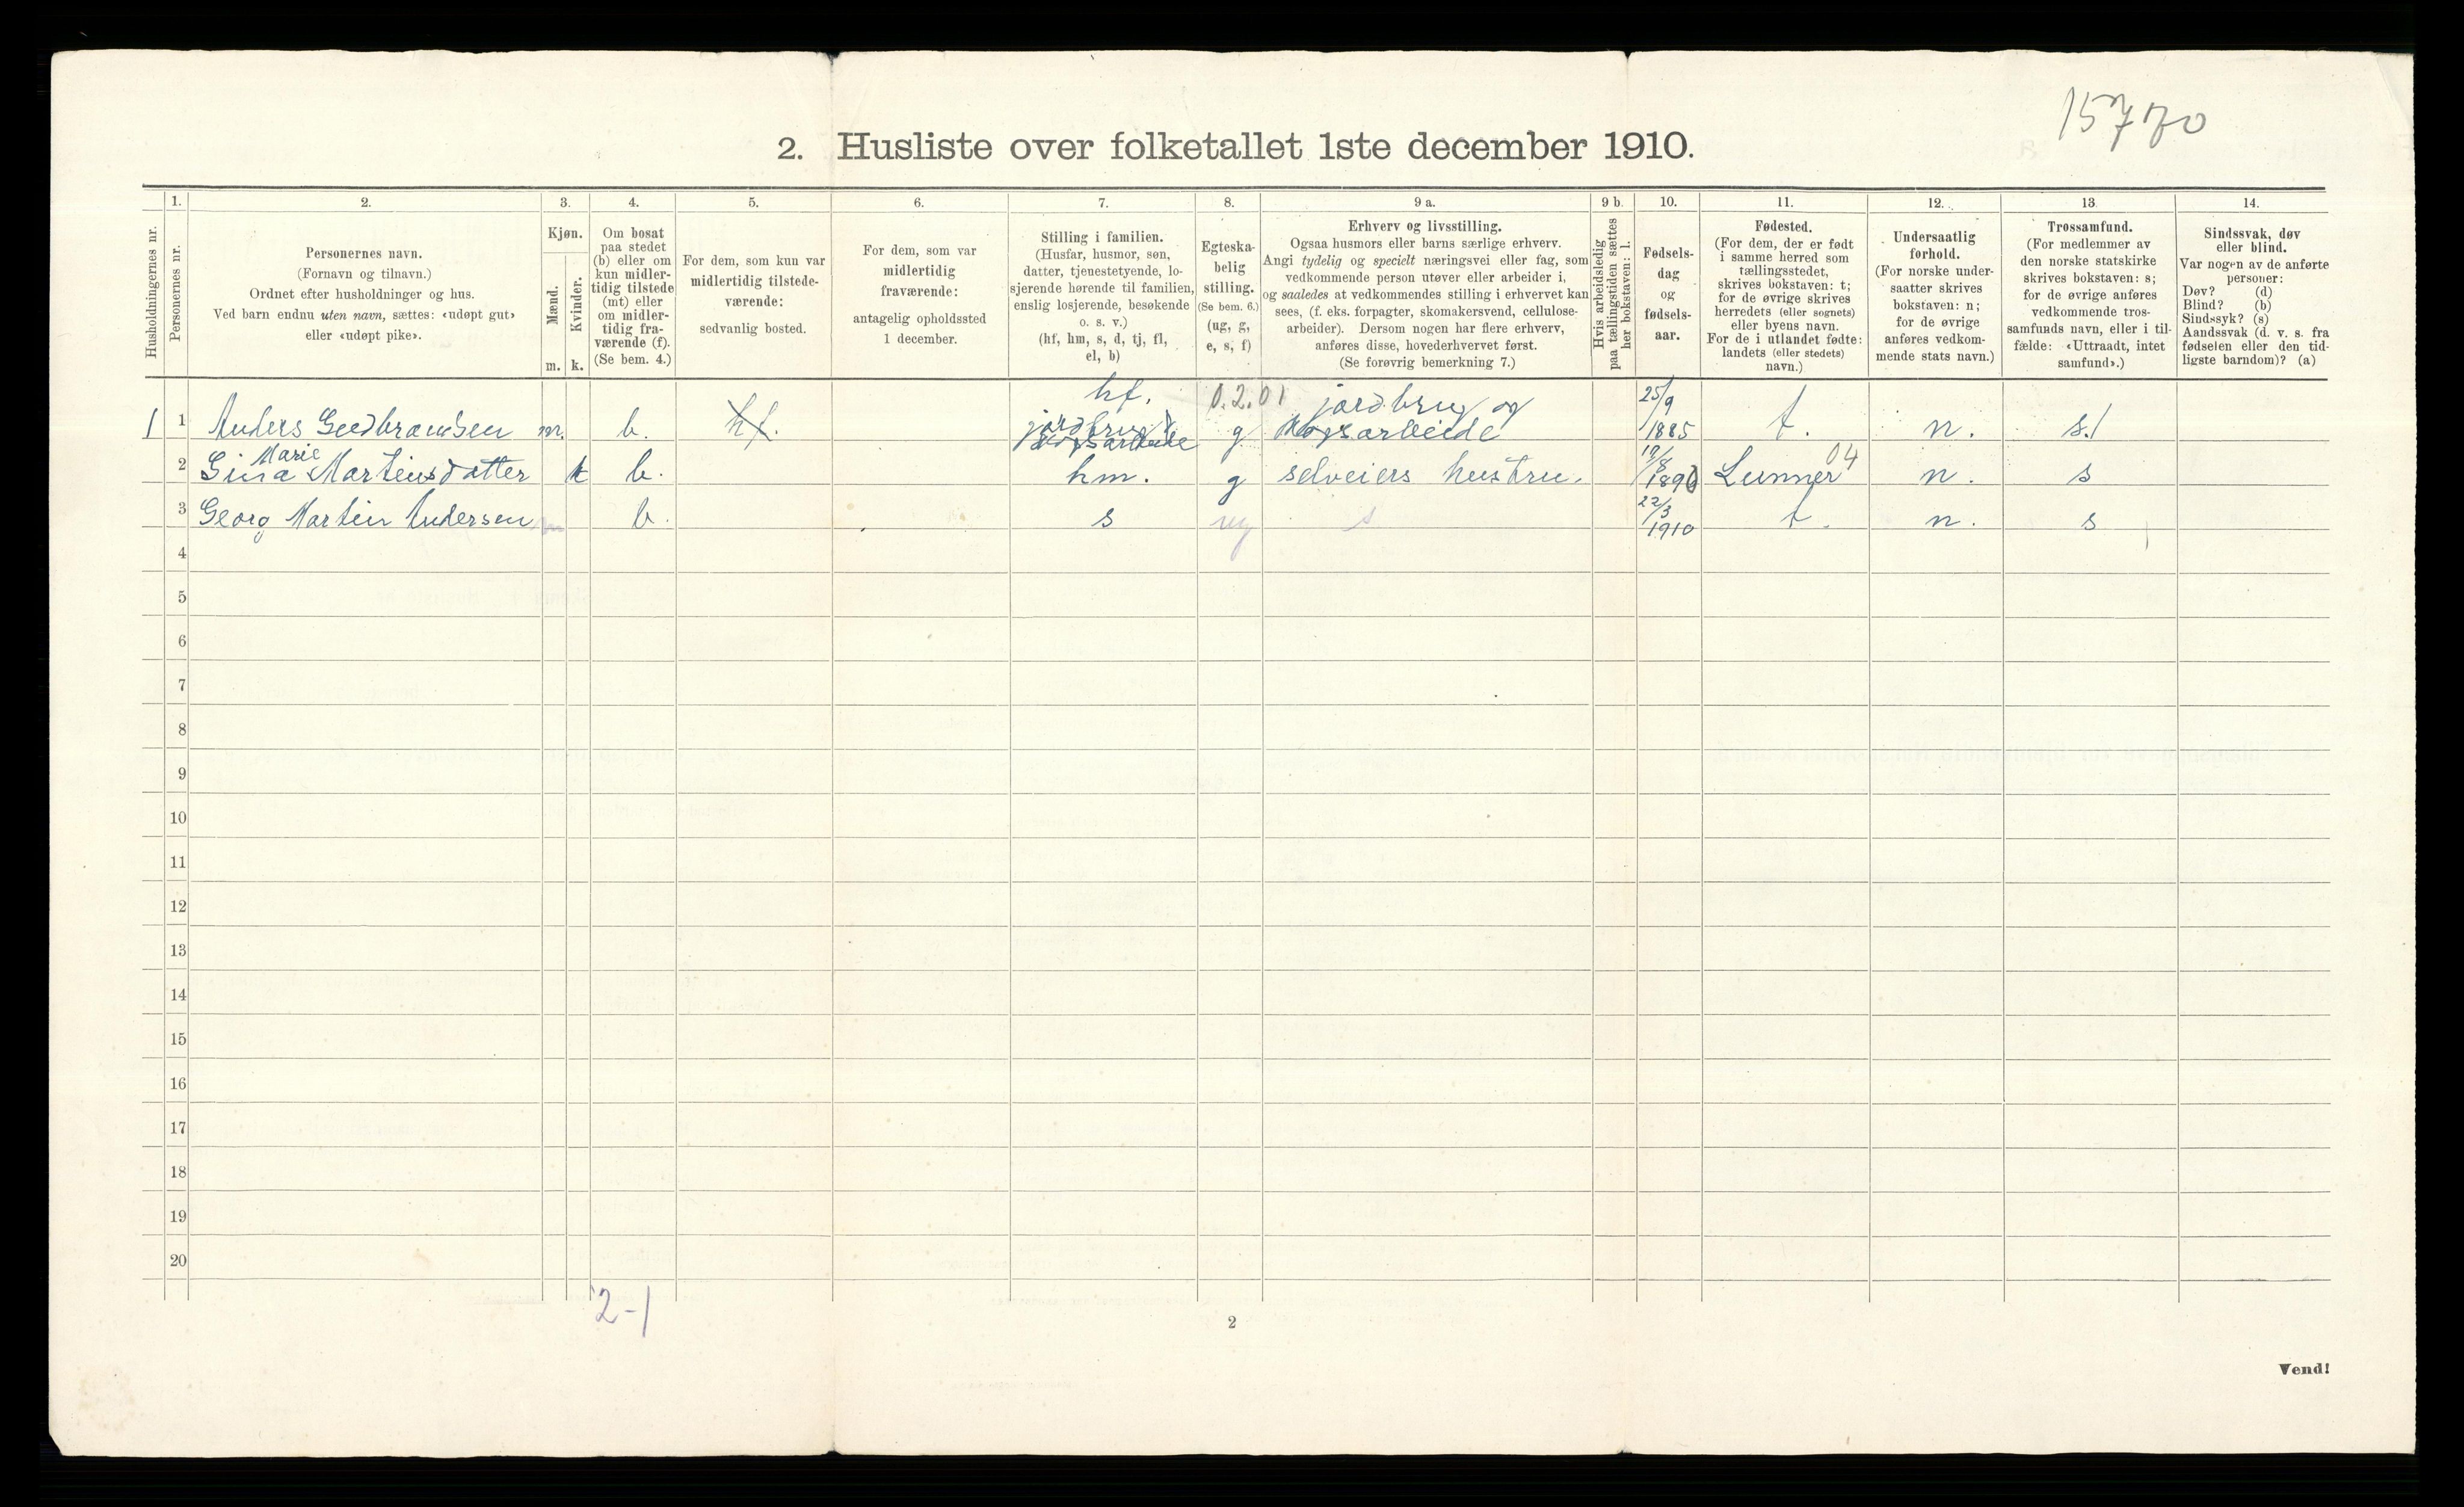 15770
2. Husliste over folketallet 1ste december 1910.
Husholdningernes nr.
1.
Personernes nr.
2.
Personernes navn.
(Fornavn og tilnavn.)
Ordnet efter husholdninger og hus.
Ved barn endnu uten navn, sættes: «udøpt gut»
eller «udøpt pike».
3.
Kjøn.
Mænd.
Kvinder.
m. k.
4.
Om bosat
paa stedet
(b) eller om
kun midler-
tidig tilstede
(mt) eller
om midler-
tidig fra-
værende (f).
(Se bem. 4.)
5.
For dem, som kun var
midlertidig tilstede-
værende:
sedvanlig bosted.
6.
For dem, som var
midlertidig
fraværende:
antagelig opholdssted
1 december.
7.
Stilling i familien.
(Husfar, husmor, søn,
datter, tjenestetyende, lo-
sjerende hørende til familien,
enslig losjerende, besøkende
o. s. v.)
(hf, hm, s, d, tj, fl,
el, b)
8.
Egteska-
belig
stilling.
(Se bem. 6.)
(ug, g,
e, s, f)
9 a.
Erhverv og livsstilling.
Ogsaa husmors eller barns særlige erhverv.
Angi tydelig og specielt næringsvei eller fag, som
vedkommende person utøver eller arbeider i,
og saaledes at vedkommendes stilling i erhvervet kan
sees, (f. eks. forpagter, skomakersvend, cellulose-
arbeider). Dersom nogen har flere erhverv,
anføres disse, hovederhvervet først.
(Se forøvrig bemerkning 7.)
9 b.
Hvis arbeidsledig
paa tællingstiden sættes
her bokstaven: l.
10.
Fødsels-
dag
og
fødsels-
aar.
11.
Fødested.
(For dem, der er født
i samme herred som
tællingsstedet,
skrives bokstaven: t;
for de øvrige skrives
herredets (eller sognets)
eller byens navn.
For de i utlandet fødte:
landets (eller stedets)
navn.)
12.
Undersaatlig
forhold.
(For norske under-
saatter skrives
bokstaven: n;
for de øvrige
anføres vedkom-
mende stats navn.)
13.
Trossamfund.
(For medlemmer av
den norske statskirke
skrives bokstaven: s;
for de øvrige anføres
vedkommende tros-
samfunds navn, eller i til-
fælde: «Uttraadt, intet
samfund».)
14.
Sindssvak, døv
eller blind.
Var nogen av de anførte
personer:
Døv? (d)
Blind? (b)
Sindssyk? (s)
Aandssvak (d. v. s. fra
fødselen eller den tid-
ligste barndom)? (a)
hf. 0.2.01 jordbrug og 25/9
1 1 Anders Gudbrandsen m. b. hf. jordbrug skogsarbeide g skogsarbeide 1885 t. n. s.
Marie 19/8 04
2 Gina Martinsdatter k b. hm. g selveiers hustru. 1890 Lunner n. s
22/3
3 Georg Martin Andersen m b. s ug s 1910 t. n. s
4
5
6
7
8
9
10
11
12
13
14
15
16
17
18
19
20
2-1
2
Vend!